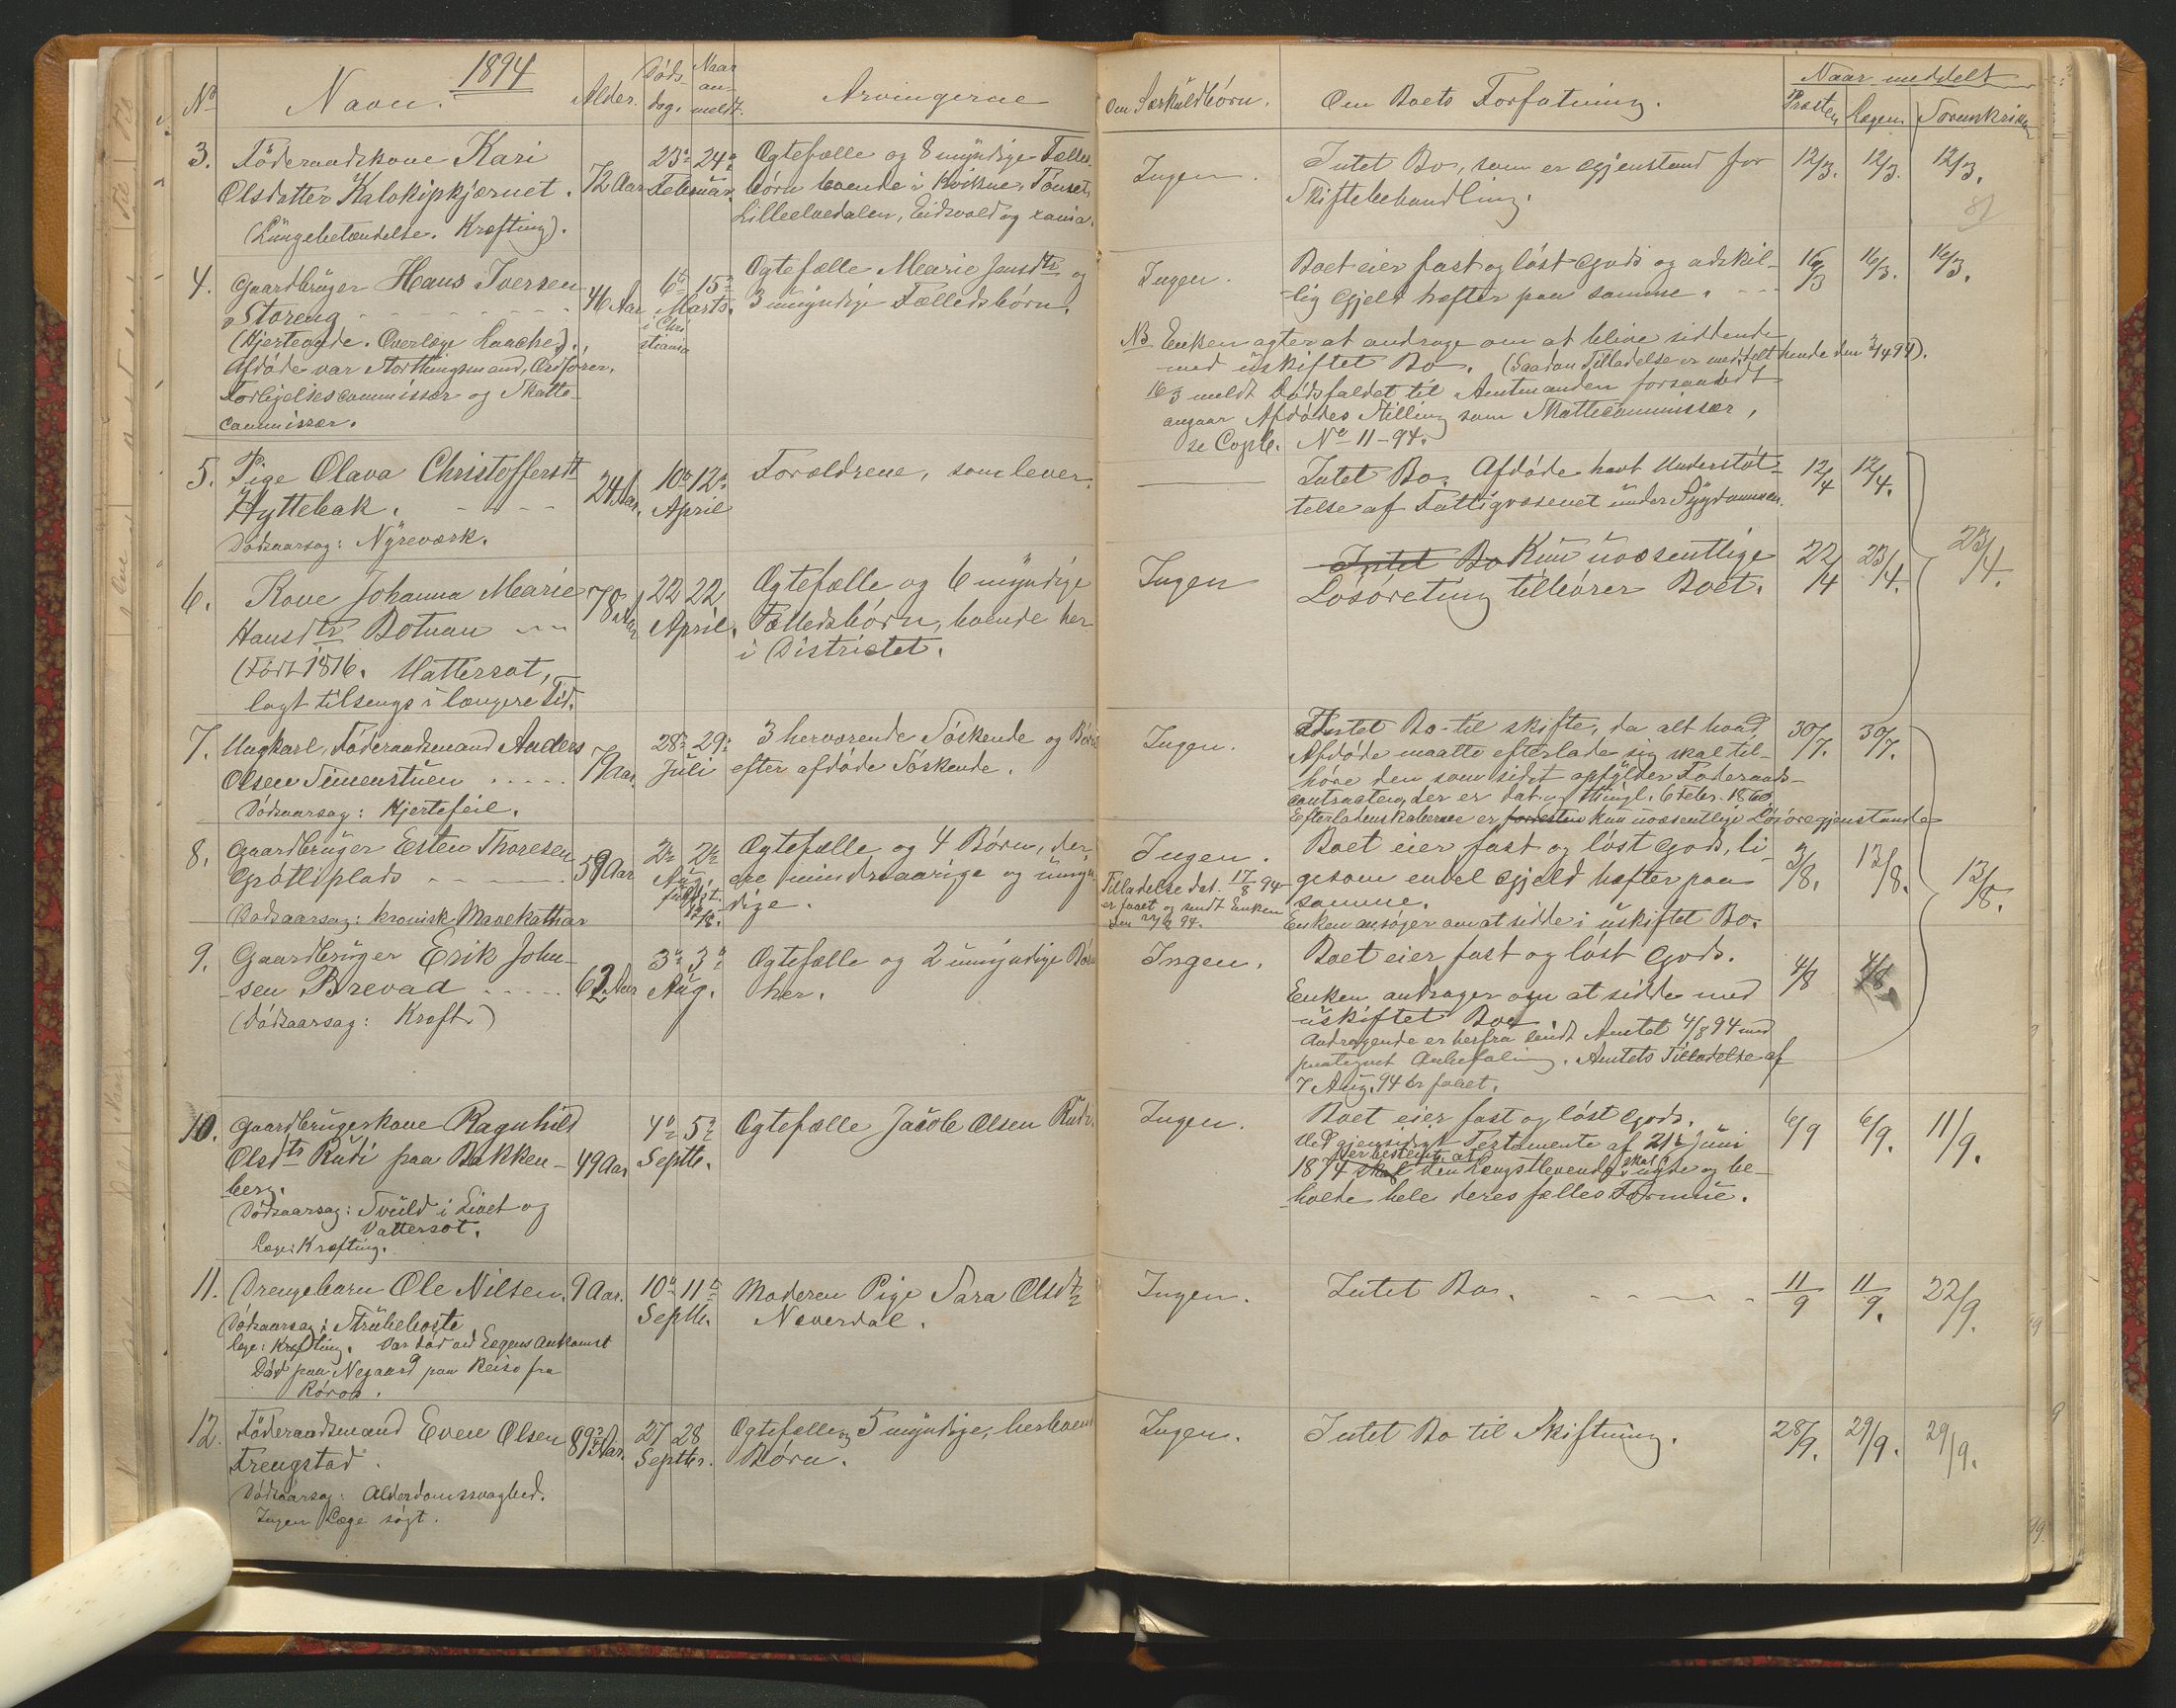 1894
No
Navn.
Alder.
Döds
dag.
Naar
an-
meldt.
Arvingerne
Om Særkuldbörn.
Om Boets Forfatning.
Naar meddelt
Præsten
Lægen.
Sorenskriver
3.
Föderaadskone Kari
Olsdatter Kalokipkjærnet.
(Lüngebetændelse. Kræfting).
72 Aar
23de 24de
Februar.
Ogtefælle og 8 myndige Fælles
börn boende i Kvikne, Tönset,
Lilleelvedalen, Eidsvold og xania.
Ingen.
Intet Bo, som er Gjenstand for
Skiftebehandling.
12/3.
12/3.
12/3.
4.
Gaardbrüger Hans Iversen
Storeng
(Hjerteonde. Overlæge Laache).
Afdöde var Storthingsmand, Ordförer,
Forligelsescommissær og Skatte-
commissær.
46 Aar
6te 15de
Marts.
i Chri
stiania
Ogtefælle Marie Jensdtr og
3 ümyndige Fælledsbörn.
Ingen.
Boet eier fast og löst Gods og adskil-
-lig Gjeld hæfter paa samme.
16/3
16/3.
16/3.
NB Enken agter at andrage om at blive siddende
med üskiftet Bo. (Saadan Tilladelse er meddelt hende den 2/4 94).
16/3 meldt Dödsfaldet til Amtmanden forsaavidt
angaar Afdödes Stilling som Skattecommissær,
se Copib. No 11-94.
5.
Pige Olava Christoffersdt
Hyttebak.
Dödsaarsag: Nyreværk.
24 Aar.
10de 12de
April
Forældrene, som lever.
Intet Bo. Afdöde havt Understöt-
telse af Fattigvæsenet ünder Sygdommen.
12/4
12/4.
6.
Kone Johanna Marie
Hansdtr Botnan
(Födt 1816. Vattersot,
lagt tilsengs i længere Tid.
78 Aar
22 22
April.
Ogtefælle og 6 myndige
Fælledsbörn, boende her
i Districtet.
Ingen
Intet Bo Kün üvæsentlige
Lösöreting tilhörer Boet.
22/4
23/4.
23/4.
7.
Ungkarl, Föderaadsmand Anders
Olsen Simenstuen
Dödsaarsag: Hjertefeil.
79 Aar.
28de 29de
Jüli
3 herværende Söskende og Börn
efter afdöde Söskende.
Ingen.
Intet Bo til skifte, da alt hvad
Afdöde maatte efterlade sig skal til-
höre den som sidst opfylder Föderaads-
contracten, der er dat. og thingl. 6 Febr. 1860.
Efterladenskaberne er forresten kun üvæsentlige Lösöregjenstande
30/7.
30/7.
8.
Gaardbrüger Esten Thoresen
Grötliplads
Dödsaarsag: kronisk Mavekathar
59 Aar
2den 2den
Aug.
Ogtefælle og 4 Börn, der-
ere mindreaarige og ümyn
dige.
Ingen.
Tilladelse dat. 17/8 94
er faaet og sendt Enken
Boet eier fast og löst Gods, li-
gesom endel Gjeld hæfter paa
samme.
Enken ansöger om at sidde i üskiftet Bo.
3/8.
13/8.
13/8.
9.
Gaardbrüger Erik John-
-sen Brevad
(Dödsaarsag: Kræft.)
62 Aar
3de 3de
Aug.
Ogtefælle og 2 ümyndige Börn
her.
Ingen.
Boet eier fast og löst Gods.
Enken andrager om at sidde med
üskiftet Bo
Andragende er herfra sendt Amtet 4/8 94 med
paategnet Anbefaling. Amtets Tilladelse af
7 Aug. 94 er faaet.
4/8
4/8
10.
Gaardbrügerkone Ragnhild
Olsdtr Rüdi paa Bakken-
berg.
Dödsaarsag: Svüld i Livet og
Vattersot.
Læge: Kræfting.
49 Aar
4de 5te
Septbr.
Ogtefælle Jacob Olsen Rüdi.
Ingen.
Boet eier fast og löst Gods.
Ved gjensidigt Testamente af 21de Jüni
der bestemt at
1874 skal den Længstlevende skal nyde og be-
-holde hele deres fælles Formüe.
6/9
6/9.
11/9.
11.
Drengebarn Ole Nilsen.
Dödsaarsag: Strübehoste
Læge: Kræfting. Var död ved Lægens Ankomst
Död paa Negaard paa Reise fra
Röros.
9 Aar.
10de 11te
Septbr.
Moderen Pige Sara Olsdtr
Næverdal.
Ingen.
Intet Bo.
11/9
11/9.
22/9.
12.
Föderaadsmand Even Olsen
Trengstad.
Dödsaarsag: Alderdomssvaghed.
Ingen Læge sögt.
27 28
Septbr.
Ogtefælle og 5 myndige, herboende
Börn.
Ingen.
Intet Bo til Skiftning.
28/9.
29/9.
29/9.